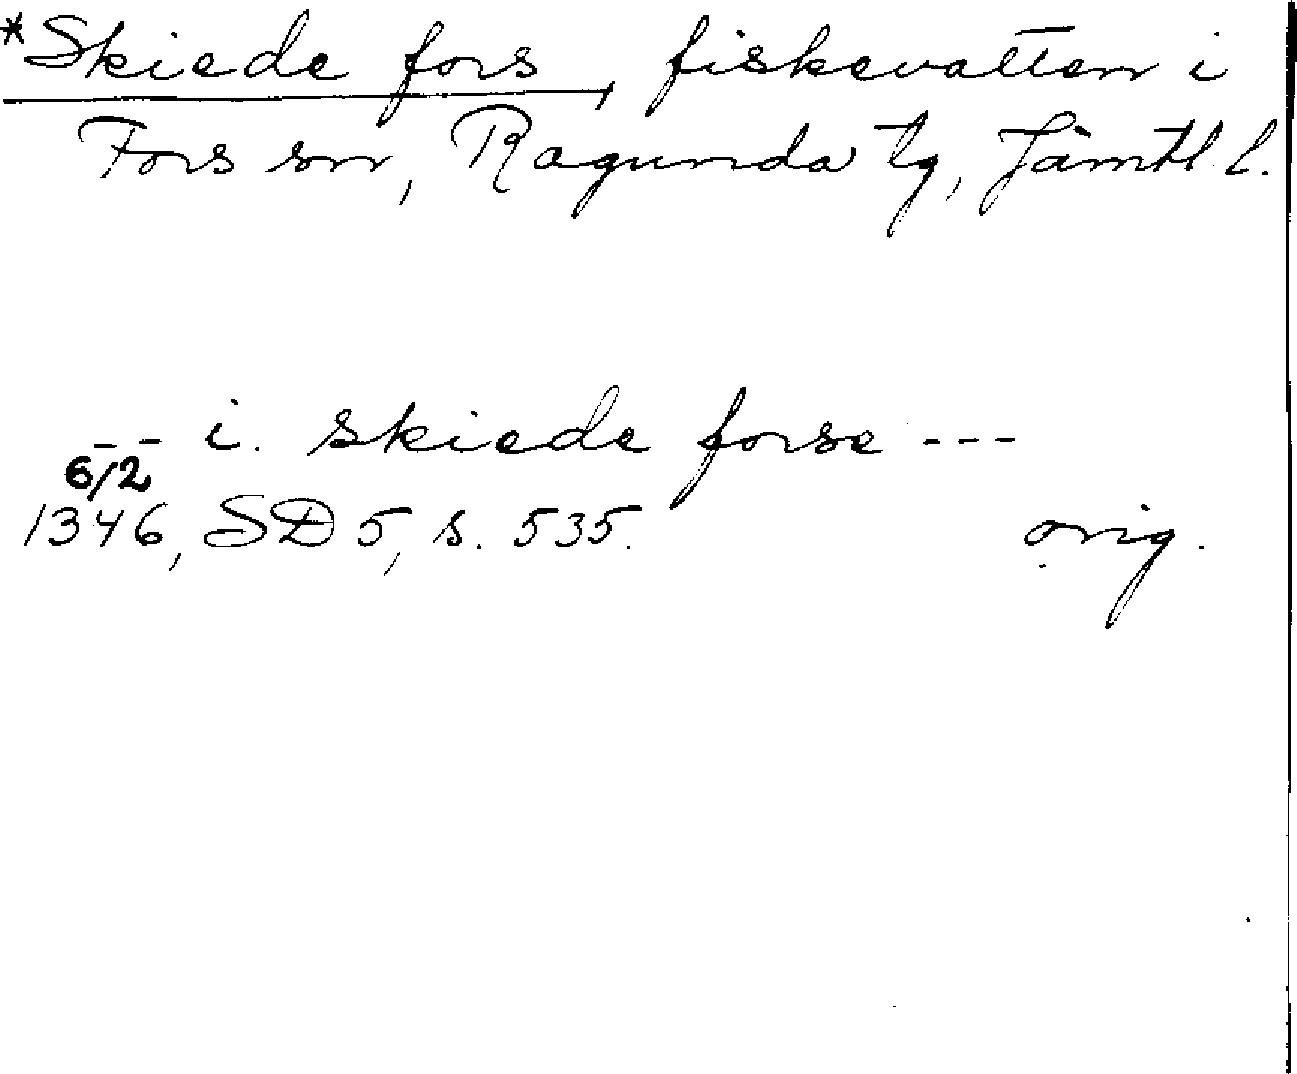 *Skiede fors, fiskevatten i
Fors sn, Ragunda tg, Jämtl. l.
-- i. skiede forse ---
6/2
1346, SD 5, s. 535.
orig.